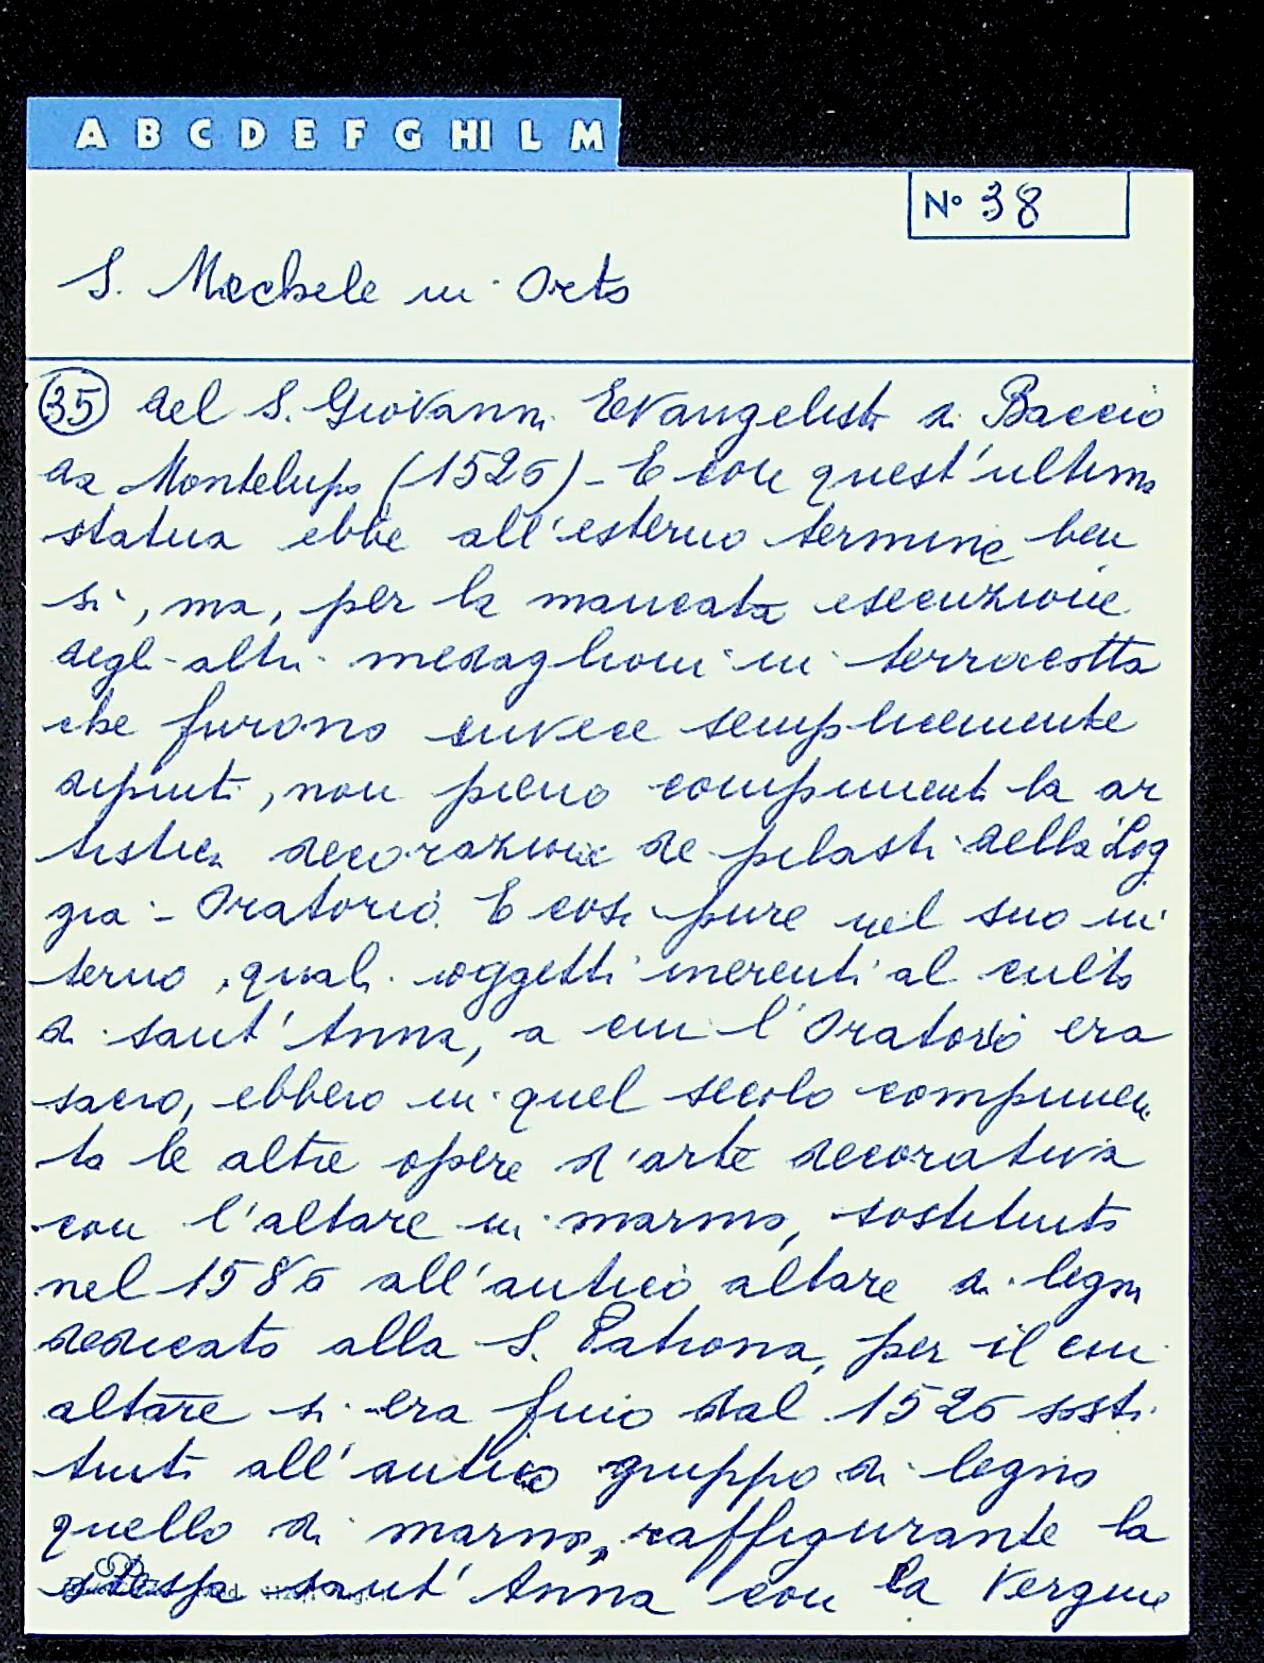 A B C D E F G HI L M
N° 38
S. Michele in Orto
35 del S. Giovanni Evangelista di Baccio
da Montelupo (1526) - E con quest'ultima
statua ebbe all'esterno termine ben
sì, ma, per la mancata esecuzione
degli altri medaglioni in terracotta
che furono invece semplicemente
dipinti, non pieno compimento la ar
tistica decorazione de pilastri della Log
gia - Oratorio. E così pure nel suo in
terno, quali soggetti inerenti al culto
di sant'Anna, a cui l'Oratorio era
sacro, ebbero in quel secolo compimen
to le altre opere d'arte decorativa
con l'altare in marmo, sostituito
nel 1586 all'antico altare di legno
dedicato alla S. Patrona, per il cui
altare si era fino dal 1526 sosti
tuito all'antico gruppo di legno
quello di marmo, raffigurante la
stessa sant'Anna con la Vergine